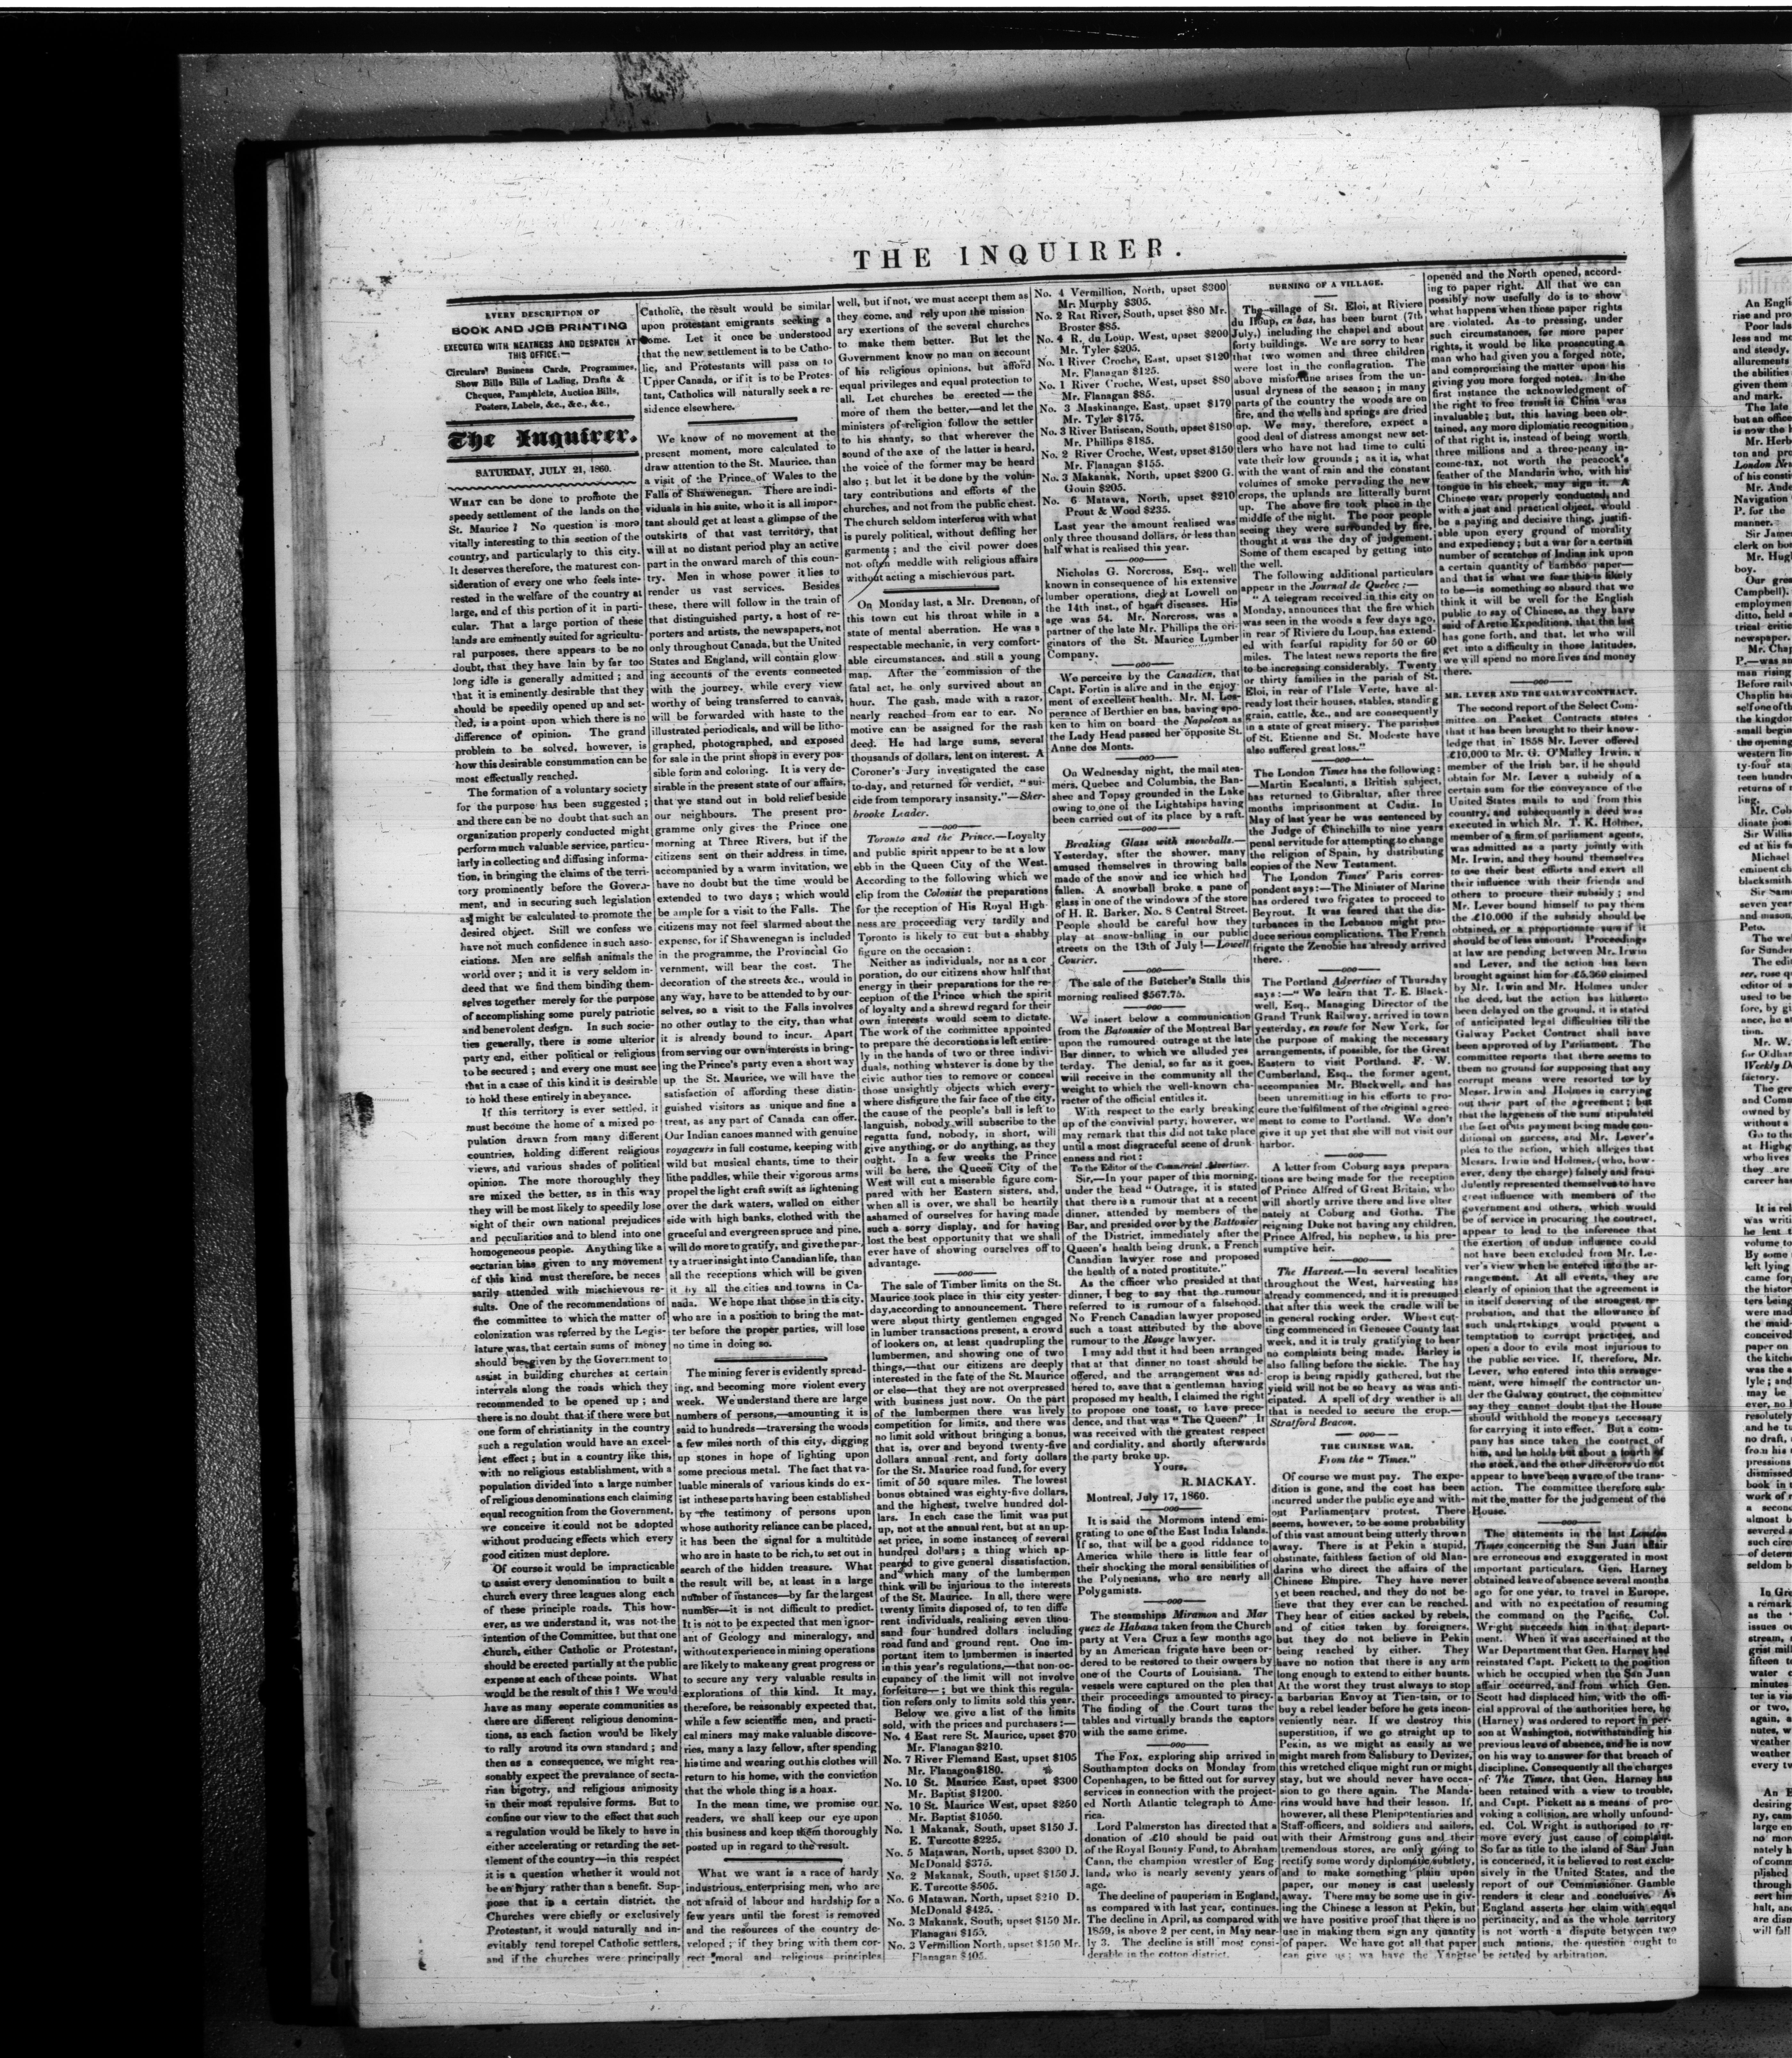 THE INQUIRER.
EVERY DESCRIPTION OF
BOOK AND JOB PRINTING
EXECUTED WITH NEATNESS AND DESPATCH AT
THIS OFFICE:—
Circulars Business Cards, Programmes,
Show Bills Bills of Lading, Drafts &
Cheques, Pamphlets, Auction Bills,
Posters, Labels, &c., &c., &c.,
The Inquirer.
SATURDAY, JULY 21, 1860.
WHAT can be done to promote the
speedy settlement of the lands on the
St. Maurice? No question is more
vitally interesting to this section of the
country, and particularly to this city.
It deserves therefore, the maturest con-
sideration of every one who feels inte-
rested in the welfare of the country at
large, and of this portion of it in parti-
cular. That a large portion of these
lands are eminently suited for agricultu-
ral purposes, there appears to be no
doubt, that they have lain by far too
long idle is generally admitted; and
that it is eminently desirable that they
should be speedily opened up and set-
tled, is a point upon which there is no
difference of opinion. The grand
problem to be solved, however, is
how this desirable consummation can be
most effectually reached.
The formation of a voluntary society
for the purpose has been suggested;
and there can be no doubt that such an
organization properly conducted might
perform much valuable service, particu-
larly in collecting and diffusing informa-
tion, in bringing the claims of the terri-
tory prominently before the Govern-
ment, and in securing such legislation
as might be calculated to promote the
desired object. Still we confess we
have not much confidence in such asso-
ciations. Men are selfish animals the
world over; and it is very seldom in-
deed that we find them binding them-
selves together merely for the purpose
of accomplishing some purely patriotic
and benevolent design. In such socie-
ties generally, there is some ulterior
party end, either political or religious
to be secured; and every one must see
that in a case of this kind it is desirable
to hold these entirely in abeyance.
If this territory is ever settled, it
must become the home of a mixed po-
pulation drawn from many different
countries, holding different religious
views, and various shades of political
opinion. The more thoroughly they
are mixed the better, as in this way
they will be most likely to speedily lose
sight of their own national prejudices
and peculiarities and to blend into one
homogeneous people. Anything like a
sectarian bias given to any movement
of this kind must therefore, be neces
sarily attended with mischievous re-
sults. One of the recommendations of
the committee to which the matter of
colonization was referred by the Legis-
lature was, that certain sums of money
should be given by the Government to
assist in building churches at certain
intervals along the roads which they
recommended to be opened up; and
there is no doubt that if there were but
one form of christianity in the country
such a regulation would have an excel-
lent effect; but in a country like this,
with no religious establishment, with a
population divided into a large number
of religious denominations each claiming
equal recognition from the Government,
we conceive it could not be adopted
without producing effects which every
good citizen must deplore.
Of course it would be impracticable
to assist every denomination to built a
church every three leagues along each
of these principle roads. This how-
ever, as we understand it, was not the
intention of the Committee, but that one
church, either Catholic or Protestant,
should be erected partially at the public
expense at each of these points. What
would be the result of this? We would
have as many seperate communities as
there are different religious denomina-
tions, as each faction would be likely
to rally around its own standard; and
then as a consequence, we might rea-
sonably expect the prevalence of secta-
rian bigotry, and religious animosity
in their most repulsive forms. But to
confine our view to the effect that such
a regulation would be likely to have in
either accelerating or retarding the set-
tlement of the country—in this respect
it is a question whether it would not
be an injury rather than a benefit. Sup-
pose that in a certain district, the
Churches were chiefly or exclusively
Protestant, it would naturally and in-
evitably tend to repel Catholic settlers,
and if the churches were principally
Catholic, the result would be similar
upon protestant emigrants seeking a
home. Let it once be understood
that the new settlement is to be Catho-
lic, and Protestants will pass on to
Upper Canada, or if it is to be Protes-
tant, Catholics will naturally seek a re-
sidence elsewhere.
We know of no movement at the
present moment, more calculated to
draw attention to the St. Maurice, than
a visit of the Prince of Wales to the
Falls of Shawenegan. There are indi-
viduals in his suite, who it is all impor-
tant should get at least a glimpse of the
outskirts of that vast territory, that
will at no distant period play an active
part in the onward march of this coun-
try. Men in whose power it lies to
render us vast services. Besides
these, there will follow in the train of
that distinguished party, a host of re-
porters and artists, the newspapers, not
only throughout Canada, but the United
States and England, will contain glow-
ing accounts of the events connected
with the journey, while every view
worthy of being transferred to canvas,
will be forwarded with haste to the
illustrated periodicals, and will be litho-
graphed, photographed, and exposed
for sale in the print shops in every pos-
sible form and coloring. It is very de-
sirable in the present state of our affairs,
that we stand out in bold relief beside
our neighbours. The present pro-
gramme only gives the Prince one
morning at Three Rivers, but if the
citizens sent on their address in time,
accompanied by a warm invitation, we
have no doubt but the time would be
extended to two days; which would
be ample for a visit to the Falls. The
citizens may not feel alarmed about the
expense, for if Shawenegan is included
in the programme, the Provincial Go
vernment, will bear the cost. The
decoration of the streets &c., would in
any way, have to be attended to by our-
selves, so a visit to the Falls involves
no other outlay to the city, than what
it is already bound to incur. Apart
from serving our own interests in bring-
ing the Prince's party even a short way
up the St. Maurice, we will have the
satisfaction of affording these distin-
guished visitors as unique and fine a
treat, as any part of Canada can offer.
Our Indian canoes manned with genuine
royageurs in full costume, keeping with
wild but musical chants, time to their
lithe paddles, while their vigorous arms
propel the light craft swift as lightening
over the dark waters, walled on either
side with high banks, clothed with the
graceful and evergreen spruce and pine,
will do more to gratify, and give the par-
ty a truer insight into Canadian life, than
all the receptions which will be given
it by all the cities and towns in Ca-
nada. We hope that those in this city,
who are in a position to bring the mat-
ter before the proper parties, will lose
no time in doing so.
The mining fever is evidently spread-
ing, and becoming more violent every
week. We understand there are large
numbers of persons,—amounting it is
said to hundreds—traversing the woods
a few miles north of this city, digging
up stones in hope of lighting upon
some precious metal. The fact that va-
luable minerals of various kinds do ex-
ist in these parts having been established
by the testimony of persons upon
whose authority reliance can be placed,
it has been the signal for a multitude
who are in haste to be rich, to set out in
search of the hidden treasure. What
the result will be, at least in a large
number of instances—by far the largest
number—it is not difficult to predict.
It is not to be expected that men ignor-
ant of Geology and mineralogy, and
without experience in mining operations
are likely to make any great progress or
to secure any very valuable results in
explorations of this kind. It may,
therefore, be reasonably expected that,
while a few scientific men, and practi-
cal miners may make valuable discove-
ries, many a lazy fellow, after spending
his time and wearing out his clothes will
return to his home, with the conviction
that the whole thing is a hoax.
In the mean time, we promise our
readers, we shall keep our eye upon
this business and keep them thoroughly
posted up in regard to the result.
What we want is a race of hardy
industrious, enterprising men, who are
not afraid of labour and hardship for a
few years until the forest is removed
and the resources of the country de-
veloped; if they bring with them cor-
rect moral and religious principles
well, but if not, we must accept them as
they come, and rely upon the mission
ary exertions of the several churches
to make them better. But let the
Government know no man on account
of his religious opinions, but afford
equal privileges and equal protection to
all. Let churches be erected—the
more of them the better,—and let the
ministers of religion follow the settler
to his shanty, so that wherever the
sound of the axe of the latter is heard,
the voice of the former may be heard
also; but let it be done by the volun-
tary contributions and efforts of the
churches, and not from the public chest.
The church seldom interferes with what
is purely political, without defiling her
garments; and the civil power does
not often meddle with religious affairs
without acting a mischievous part.
On Monday last, a Mr. Drennan, of
this town cut his throat while in a
state of mental aberration. He was a
respectable mechanic, in very comfort-
able circumstances, and still a young
man. After the commission of the
fatal act, he only survived about an
hour. The gash, made with a razor,
nearly reached from ear to ear. No
motive can be assigned for the rash
deed. He had large sums, several
thousands of dollars, lent on interest. A
Coroner's Jury investigated the case
to-day, and returned for verdict, "sui-
cide from temporary insanity."—Sher-
brooke Leader.
Toronto and the Prince.—Loyalty
and public spirit appear to be at a low
ebb in the Queen City of the West.
According to the following which we
clip from the Colonist the preparations
for the reception of His Royal High-
ness are proceeding very tardily and
Toronto is likely to cut but a shabby
figure on the occasion:
Neither as individuals, nor as a cor
poration, do our citizens show half that
energy in their preparations for the re-
ception of the Prince which the spirit
of loyalty and a shrewd regard for their
own interests would seem to dictate.
The work of the committee appointed
to prepare the decorations is left entire-
ly in the hands of two or three indivi-
duals, nothing whatever is done by the
civic authorties to remove or conceal
those unsightly objects which every-
where disfigure the fair face of the city,
the cause of the people's ball is left to
languish, nobody will subscribe to the
regatta fund, nobody, in short, will
give anything, or do anything, as they
ought. In a few weeks the Prince
will be here, the Queen City of the
West will cut a miserable figure com-
pared with her Eastern sisters, and,
when all is over, we shall be heartily
ashamed of ourselves for having made
such a sorry display, and for having
lost the best opportunity that we shall
ever have of showing ourselves off to
advantage.
The sale of Timber limits on the St.
Maurice took place in this city yester-
day, according to announcement. There
were about thirty gentlemen engaged
in lumber transactions present, a crowd
of lookers on, at least quadrupling the
lumbermen, and showing one of two
things,—that our citizens are deeply
interested in the fate of the St. Maurice
or else—that they are not overpressed
with business just now. On the part
of the lumbermen there was lively
competition for limits, and there was
no limit sold without bringing a bonus,
that is, over and beyond twenty-five
dollars annual rent, and forty dollars
for the St. Maurice road fund, for every
limit of 50 square miles. The lowest
bonus obtained was eighty-five dollars,
and the highest, twelve hundred dol-
lars. In each case the limit was put
up, not at the annual rent, but at an up-
set price, in some instances of several
hundred dollars; a thing which ap-
peared to give general dissatisfaction,
and which many of the lumbermen
think will be injurious to the interests
of the St. Maurice. In all, there were
twenty limits disposed of, to ten diffe
rent individuals, realising seven thou-
sand four hundred dollars including
road fund and ground rent. One im-
portant item to lumbermen is inserted
in this year's regulations,—that non-oc-
cupancy of the limit will not involve
forfeiture—; but we think this regula-
tion refers only to limits sold this year.
Below we give a list of the limits
sold, with the prices and purchasers:—
No. 4 East rere St. Maurice, upset $70
Mr. Flanagan $210.
No. 7 River Flemand East, upset $105
Mr. Flanagon $180.
No. 10 St. Maurice East, upset $300
Mr. Baptist $1200.
No. 10 St. Maurice West, upset $250
Mr. Baptist $1050.
No. 1 Makanak, South, upset $150 J.
E. Turcotte $225.
No. 5 Matawan, North, upset $300 D.
McDonald $375.
No. 2 Makanak, South, upset $150 J.
E. Turcotte $505.
No. 6 Matawan, North, upset $210 D.
McDonald $425.
No. 3 Makanak, South, upset $150 Mr.
Flanagan $155.
No. 3 Vermillion North, upset $150 Mr.
Flanagan $405.
No. 4 Vermillion, North, upset $300
Mr. Murphy $305.
No. 2 Rat River, South, upset $80 Mr.
Broster $85.
No. 4 R. du Loup, West, upset $200
Mr. Tyler $205.
No. 1 River Croche, East, upset $120
Mr. Flanagan $125.
No. 1 River Croche, West, upset $80
Mr. Flanagan $85.
No. 3 Maskinange, East, upset $170
Mr. Tyler $175.
No. 3 River Batiscan, South, upset $180
Mr. Phillips $185.
No. 2 River Croche, West, upset $150
Mr. Flanagan $155.
No. 3 Makanak, North, upset $200 G.
Gouin $205.
No. 6 Matawa, North, upset $210
Prout & Wood $235.
Last year the amount realised was
only three thousand dollars, or less than
half what is realised this year.
Nicholas G. Norcross, Esq., well
known in consequence of his extensive
lumber operations, died at Lowell on
the 14th inst., of heart diseases. His
age was 54. Mr. Norcross, was a
partner of the late Mr. Phillips the ori-
ginators of the St. Maurice Lumber
Company.
We perceive by the Canadien, that
Capt. Fortin is alive and in the enjoy-
ment of excellent health. Mr. M. Les-
perance of Berthier en bas, having spo-
ken to him on board the Napoleon as
the Lady Head passed her opposite St.
Anne des Monts.
On Wednesday night, the mail stea-
mers, Quebec and Columbia, the Ban-
shee and Topsy grounded in the Lake
owing to one of the Lightships having
been carried out of its place by a raft.
Breaking Glass with snowballs.—
Yesterday, after the shower, many
amused themselves in throwing balls
made of the snow and ice which had
fallen. A snowball broke a pane of
glass in one of the windows of the store
of H. R. Barker, No. 8 Central Street.
People should be careful how they
play at snow-balling in our public
streets on the 13th of July!—Lowell
Courier.
The sale of the Butcher's Stalls this
morning realised $567.75.
We insert below a communication
from the Batonnier of the Montreal Bar
upon the rumoured outrage at the late
Bar dinner, to which we alluded yes
terday. The denial, so far as it goes,
will receive in the community all the
weight to which the well-known cha-
racter of the official entitles it.
With respect to the early breaking
up of the convivial party, however, we
may remark that this did not take place
until a most disgraceful scene of drunk-
enness and riot:
To the Editor of the Commercial Advertiser.
Sir,—In your paper of this morning,
under the head "Outrage, it is stated
that there is a rumour that at a recent
dinner, attended by members of the
Bar, and presided over by the Battonier
of the District, immediately after the
Queen's health being drunk, a French
Canadian lawyer rose and proposed
the health of a noted prostitute."
As the officer who presided at that
dinner, I beg to say that the rumour
referred to is rumour of a falsehood.
No French Canadian lawyer proposed
such a toast attributed by the above
rumour to the Rouge lawyer.
I may add that it had been arranged
that at that dinner no toast should be
offered, and the arrangement was ad-
hered to, save that a gentleman having
proposed my health, I claimed the right
to propose one toast, to have prece-
dence, and that was "The Queen!" It
was received with the greatest respect
and cordiality, and shortly afterwards
the party broke up.
Yours,
R. MACKAY.
Montreal, July 17, 1860.
It is said the Mormons intend emi-
grating to one of the East India Islands.
If so, that will be a good riddance to
America while there is little fear of
their shocking the moral sensibilities of
the Polynesians, who are nearly all
Polygamists.
The steamships Miramon and Mar
quez de Habana taken from the Church
party at Vera Cruz a few months ago
by an American frigate have been or-
dered to be restored to their owners by
one of the Courts of Louisiana. The
vessels were captured on the plea that
their proceedings amounted to piracy.
The finding of the Court turns the
tables and virtually brands the captors
with the same crime.
The Fox, exploring ship arrived in
Southampton docks on Monday from
Copenhagen, to be fitted out for survey
services in connection with the project-
ed North Atlantic telegraph to Ame-
rica.
Lord Palmerston has directed that a
donation of £10 should be paid out
of the Royal Bounty Fund, to Abraham
Cann, the champion wrestler of Eng-
land, who is nearly seventy years of
age.
The decline of pauperism in England,
as compared with last year, continues.
The decline in April, as compared with
1859, is above 2 per cent, in May near-
ly 3. The decline is still most consi-
derable in the cotton district.
BURNING OF A VILLAGE.
The village of St. Eloi, at Riviere
du Loup, en bas, has been burnt (7th
July,) including the chapel and about
forty buildings. We are sorry to hear
that two women and three children
were lost in the conflagration. The
above misfortune arises from the un-
usual dryness of the season; in many
parts of the country the woods are on
fire, and the wells and springs are dried
up. We may, therefore, expect a
good deal of distress amongst new set-
tlers who have not had time to culti
vate their low grounds; as it is, what
with the want of rain and the constant
volumes of smoke pervading the new
crops, the uplands are litterally burnt
up. The above fire took place in the
middle of the night. The poor people
seeing they were surrounded by fire,
thought it was the day of judgement.
Some of them escaped by getting into
the well.
The following additional particulars
appear in the Journal de Quebec:—
"A telegram received in this city on
Monday, announces that the fire which
was seen in the woods a few days ago,
in rear of Riviere du Loup, has extend-
ed with fearful rapidity for 50 or 60
miles. The latest news reports the fire
to be increasing considerably. Twenty
or thirty families in the parish of St.
Eloi, in rear of l'Isle Verte, have al-
ready lost their houses, stables, standing
grain, cattle, &c., and are consequently
in a state of great misery. The parishes
of St. Etienne and St. Modeste have
also suffered great loss."
The London Times has the following:
—Martin Escalanti, a British subject,
has returned to Gibraltar, after three
months imprisonment at Cadiz. In
May of last year he was sentenced by
the Judge of Chinchilla to nine years
penal servitude for attempting to change
the religion of Spain, by distributing
copies of the New Testament.
The London Times' Paris corres-
pondent says:—The Minister of Marine
has ordered two frigates to proceed to
Beyrout. It was feared that the dis-
turbances in the Lebanon might pro-
duce serious complications. The French
frigate the Zenobie has already arrived
there.
The Portland Advertiser of Thursday
says:—"We learn that T. E. Black-
well, Esq., Managing Director of the
Grand Trunk Railway, arrived in town
yesterday, en route for New York, for
the purpose of making the necessary
arrangements, if possible, for the Great
Eastern to visit Portland. F. W.
Cumberland, Esq., the former agent,
accompanies Mr. Blackwell, and has
been unremitting in his efforts to pro-
cure the fulfilment of the original agree-
ment to come to Portland. We don't
give it up yet that she will not visit our
harbor.
A letter from Coburg says prepara
tions are being made for the reception
of Prince Alfred of Great Britain, who
will shortly arrive there and live alter
nately at Coburg and Gotha. The
reigning Duke not having any children,
Prince Alfred, his nephew, is his pre-
sumptive heir.
The Harvest.—In several localities
throughout the West, harvesting has
already commenced, and it is presumed
that after this week the cradle will be
in general rocking order. Wheat cut-
ting commenced in Genesee County last
week, and it is truly gratifying to hear
no complaints being made. Barley is
also falling before the sickle. The hay
crop is being rapidly gathered, but the
yield will not be so heavy as was anti-
cipated. A spell of dry weather is all
that is needed to secure the crop.—
Stratford Beacon.
THE CHINESE WAR.
From the "Times."
Of course we must pay. The expe-
dition is gone, and the cost has been
incurred under the public eye and with-
out Parliamentary protest. There
seems, however, to be some probability
of this vast amount being utterly thrown
away. There is at Pekin a stupid,
obstinate, faithless faction of old Man-
darins who direct the affairs of the
Chinese Empire. They have never
yet been reached, and they do not be-
lieve that they ever can be reached.
They hear of cities sacked by rebels,
and of cities taken by foreigners,
but they do not believe in Pekin
being reached by either. They
have no notion that there is any arm
long enough to extend to either haunts.
At the worst they trust always to stop
a barbarian Envoy at Tien-tsin, or to
buy a rebel leader before he gets incon-
veniently near. If we destroy this
superstition, if we go straight up to
Pekin, as we might as easily as we
might march from Salisbury to Devizes,
this wretched clique might run or might
stay, but we should never have occa-
sion to go there again. The Manda-
rins would have had their lesson. If,
however, all these Plenipotentiaries and
Staff-officers, and soldiers and sailors,
with their Armstrong guns and their
tremendous stores, are only going to
rectify some wordy diplomatic subtlety,
and to make something plain upon
paper, our money is cast uselessly
away. There may be some use in giv-
ing the Chinese a lesson at Pekin, but
we have positive proof that there is no
use in making them sign any quantity
of paper. We have got all that paper
can give us; we have the Yangtse
opened and the North opened, accord-
ing to paper right. All that we can
possibly now usefully do is to show
what happens when those paper rights
are violated. As to pressing, under
such circumstances, for more paper
rights, it would be like prosecuting a
man who had given you a forged note,
and compromising the matter upon his
giving you more forged notes. In the
first instance the acknowledgment of
the right to free transit in China was
invaluable; but, this having been ob-
tained, any more diplomatic recognition
of that right is, instead of being worth
three millions and a three-penny in-
come-tax, not worth the peacock's
feather of the Mandarin who, with his
tongue in his cheek, may sign it. A
Chinese war, properly conducted, and
with a just and practical object, would
be a paying and decisive thing, justifi-
able upon every ground of morality
and expediency; but a war for a certain
number of scratches of Indian ink upon
a certain quantity of bamboo paper—
and that is what we fear this is likely
to be—is something so absurd that we
think it will be well for the English
public to say of Chinese, as they have
said of Arctic Expeditions, that the last
has gone forth, and that, let who will
get into a difficulty in those latitudes,
we will spend no more lives and money
there.
MR. LEVER AND THE GALWAY CONTRACT.
The second report of the Select Com-
mittee on Packet Contracts states
that it has been brought to their know-
ledge that in 1858 Mr. Lever offered
£10,000 to Mr. G. O'Malley Irwin, a
member of the Irish bar, if he should
obtain for Mr. Lever a subsidy of a
certain sum for the conveyance of the
United States mails to and from this
country, and subsequently a deed was
executed in which Mr. T. K. Holmes,
member of a firm of parliament agents,
was admitted as a party jointly with
Mr. Irwin, and they bound themselves
to use their best efforts and exert all
their influence with their friends and
others to procure their subsidy; and
Mr. Lever bound himself to pay them
the £10,000 if the subsidy should be
obtained, or a proportionate sum if it
should be of less amount. Proceedings
at law are pending between Mr. Irwin
and Lever, and the action has been
brought against him for £5,360 claimed
by Mr. Irwin and Mr. Holmes under
the deed, but the action has hitherto
been delayed on the ground, it is stated
of anticipated legal difficulties till the
Galway Packet Contract shall have
been approved of by Parliament. The
committee reports that there seems to
them no ground for supposing that any
corrupt means were resorted to by
Messr. Irwin and Holmes in carrying
out their part of the agreement; but
that the largeness of the sum stipulated
the fact of its payment being made con-
ditional on success, and Mr. Lever's
plea to the action, which alleges that
Messrs. Irwin and Holmes, (who, how-
ever, deny the charge) falsely and frau-
dulently represented themselves to have
great influence with members of the
government and others, which would
be of service in procuring the contract,
appear to lead to the inference that
the exertion of undue influence could
not have been excluded from Mr. Le-
ver's view when he entered into the ar-
rangement. At all events, they are
clearly of opinion that the agreement is
in itself deserving of the strongest re-
probation, and that the allowance of
such undertakings would present a
temptation to corrupt practices, and
open a door to evils most injurious to
the public service. If, therefore, Mr.
Lever, who entered into this arrange-
ment, were himself the contractor un-
der the Galway contract, the committee
say they cannot doubt that the House
should withhold the moneys necessary
for carrying it into effect. But a com-
pany has since taken the contract of
him, and he holds but about a fourth of
the stock, and the other directors do not
appear to have been aware of the trans-
action. The committee therefore sub-
mit the matter for the judgement of the
House.
The statements in the last London
Times concerning the San Juan affair
are erroneous and exaggerated in most
important particulars. Gen. Harney
obtained leave of absence several months
ago for one year, to travel in Europe,
and with no expectation of resuming
the command on the Pacific. Col.
Wright succeeds him in that depart-
ment. When it was ascertained at the
War Department that Gen. Harney had
reinstated Capt. Pickett to the position
which he occupied when the San Juan
affair occurred, and from which Gen.
Scott had displaced him, with the offi-
cial approval of the authorities here, he
(Harney) was ordered to report in per-
son at Washington, notwithstanding his
previous leave of absence, and he is now
on his way to answer for that breach of
discipline. Consequently all the charges
of The Times, that Gen. Harney has
been retained with a view to trouble,
and Capt. Pickett as a means of pro-
voking a collision, are wholly unfound-
ed. Col. Wright is authorised to re-
move every just cause of complaint.
So far as title to the island of San Juan
is concerned, it is believed to rest exclu-
sively in the United States, and the
report of our Commissioner Gamble
renders it clear and conclusive. As
England asserts her claim with equal
pertinacity, and as the whole territory
is not worth a dispute between two
such nations, the question ought to
be settled by arbitration.